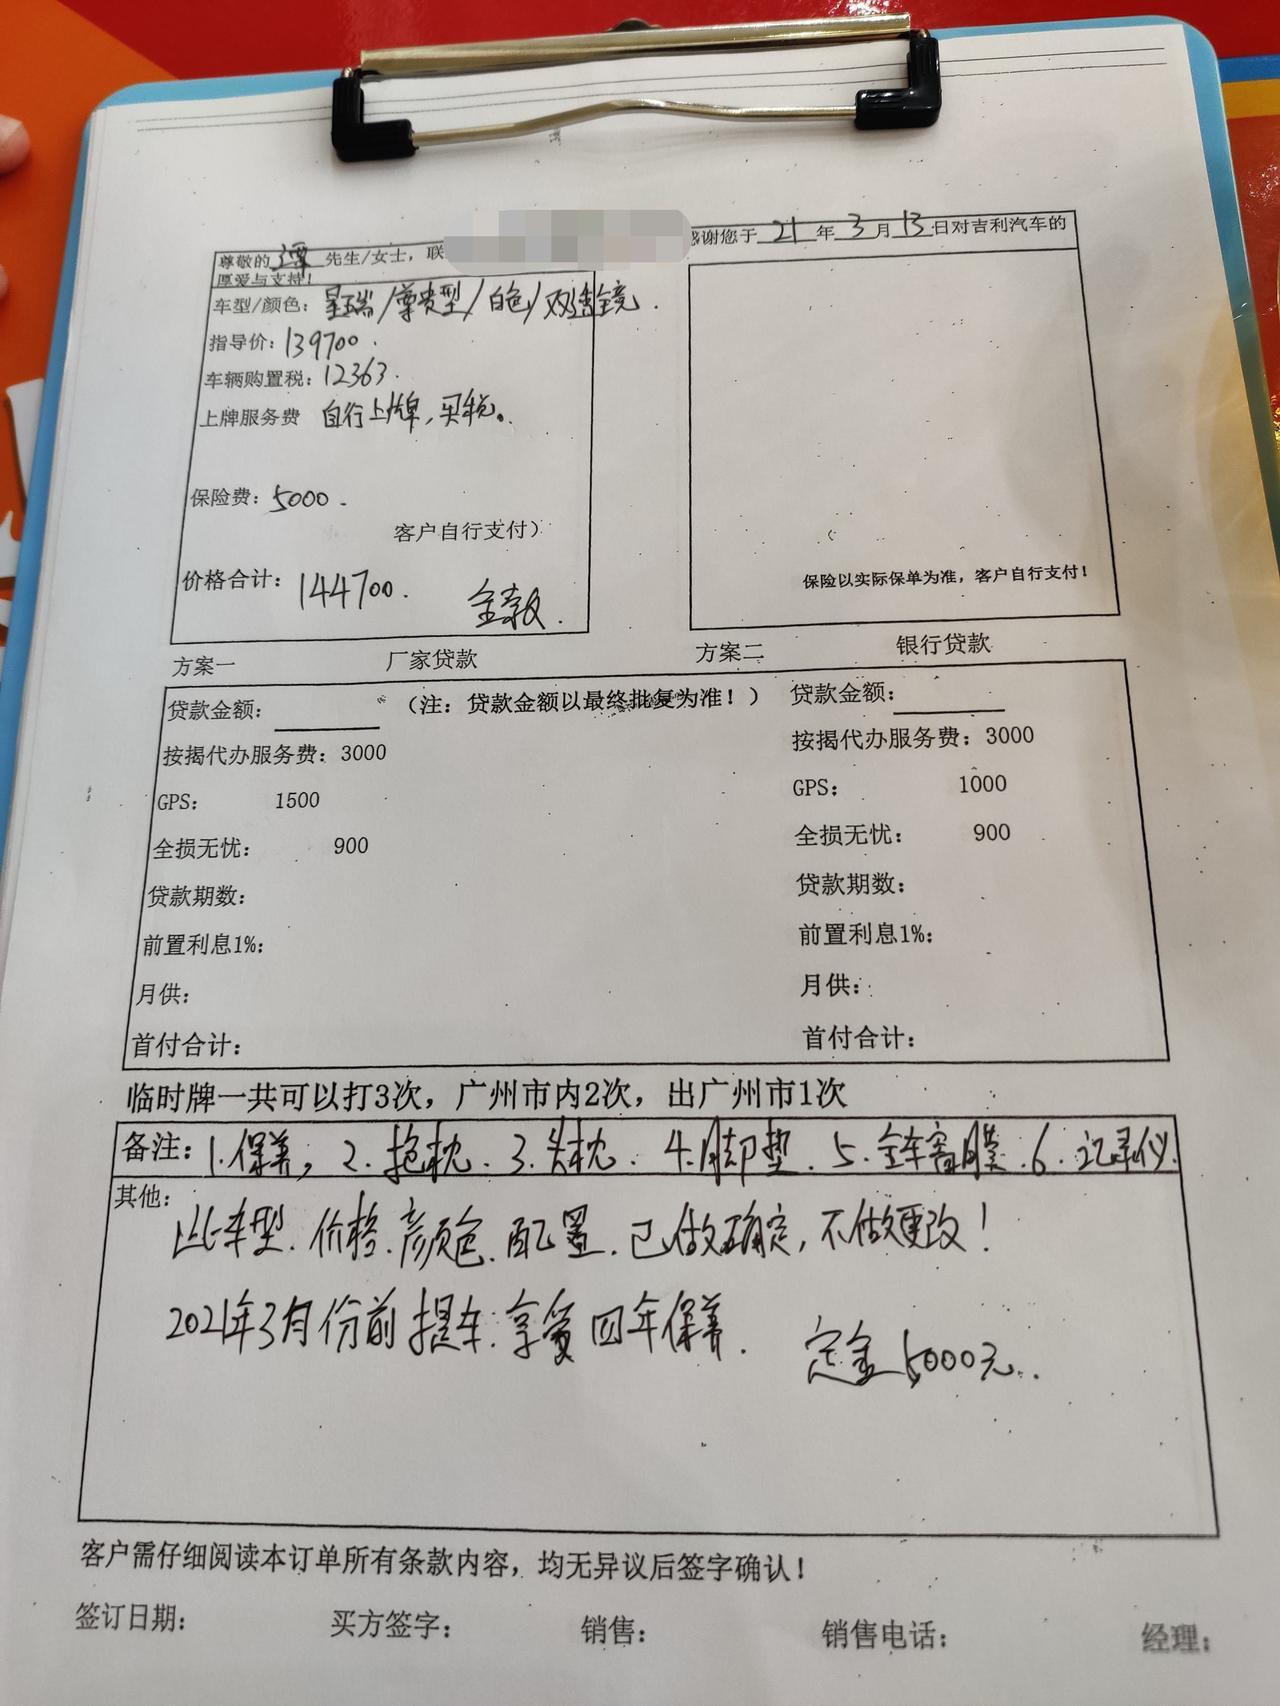 尊敬的 谭 先生/女士，联 感谢您于 21 年 3 月 13 日对吉利汽车的
厚爱与支持！
车型/颜色：星瑞/尊贵型/白色/
指导价：139700.
车辆购置税：12363.
上牌服务费 自行上牌，买税。
保险费：5000.
客户自行支付）
价格合计：144700. 全款.
保险以实际保单为准，客户自行支付！
方案一 厂家贷款 方案二 银行贷款
贷款金额： （注：贷款金额以最终批复为准！） 贷款金额：
按揭代办服务费：3000 按揭代办服务费：3000
GPS： 1500 GPS： 1000
全损无忧： 900 全损无忧： 900
贷款期数： 贷款期数：
前置利息1%： 前置利息1%：
月供： 月供：
首付合计： 首付合计：
临时牌一共可以打3次，广州市内2次，出广州市1次
备注：1.保养，2.抱枕.3.头枕.4.脚垫.5.全车窗膜.6.记录仪.
其他：
此车型.价格.颜色.配置.已做确定，不做更改！
2021年3月份前提车.享受四年保养. 定金5000元.
客户需仔细阅读本订单所有条款内容，均无异议后签字确认！
签订日期： 买方签字： 销售： 销售电话： 经理：